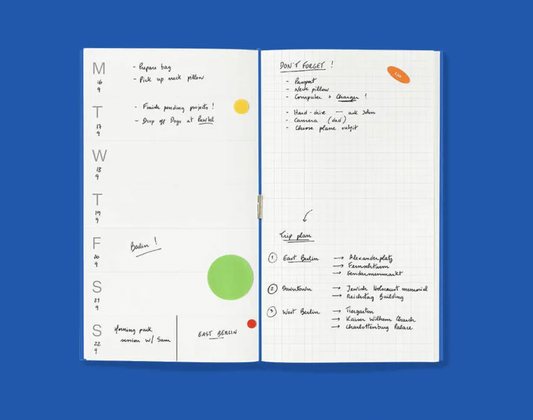 M
16
9
- Prepare bag
- Pick up neck pillow
T
17
9
- Finish pending projects !
- Drop off Dogs at
W
18
9
T
19
9
F
20
9
Berlin !
S
21
9
S
22
9
Morning park
session w/ Sam
EAST BERLIN
DON'T FORGET !
- Passport
- Neck pillow
- Computer + Charger !
- Hard-drive — ask John
- Camera (dad)
- Choose plane outfit
Trip plan
1 East Berlin → Alexanderplatz
→ Fernsehturm
→ Gendarmenmarkt
2 Downtown → Jewish Holocaust memorial
→ Reichstag Building
3 West Berlin → Tiergarten
→ Kaiser Wilhelm Church
→ Charlottenburg Palace